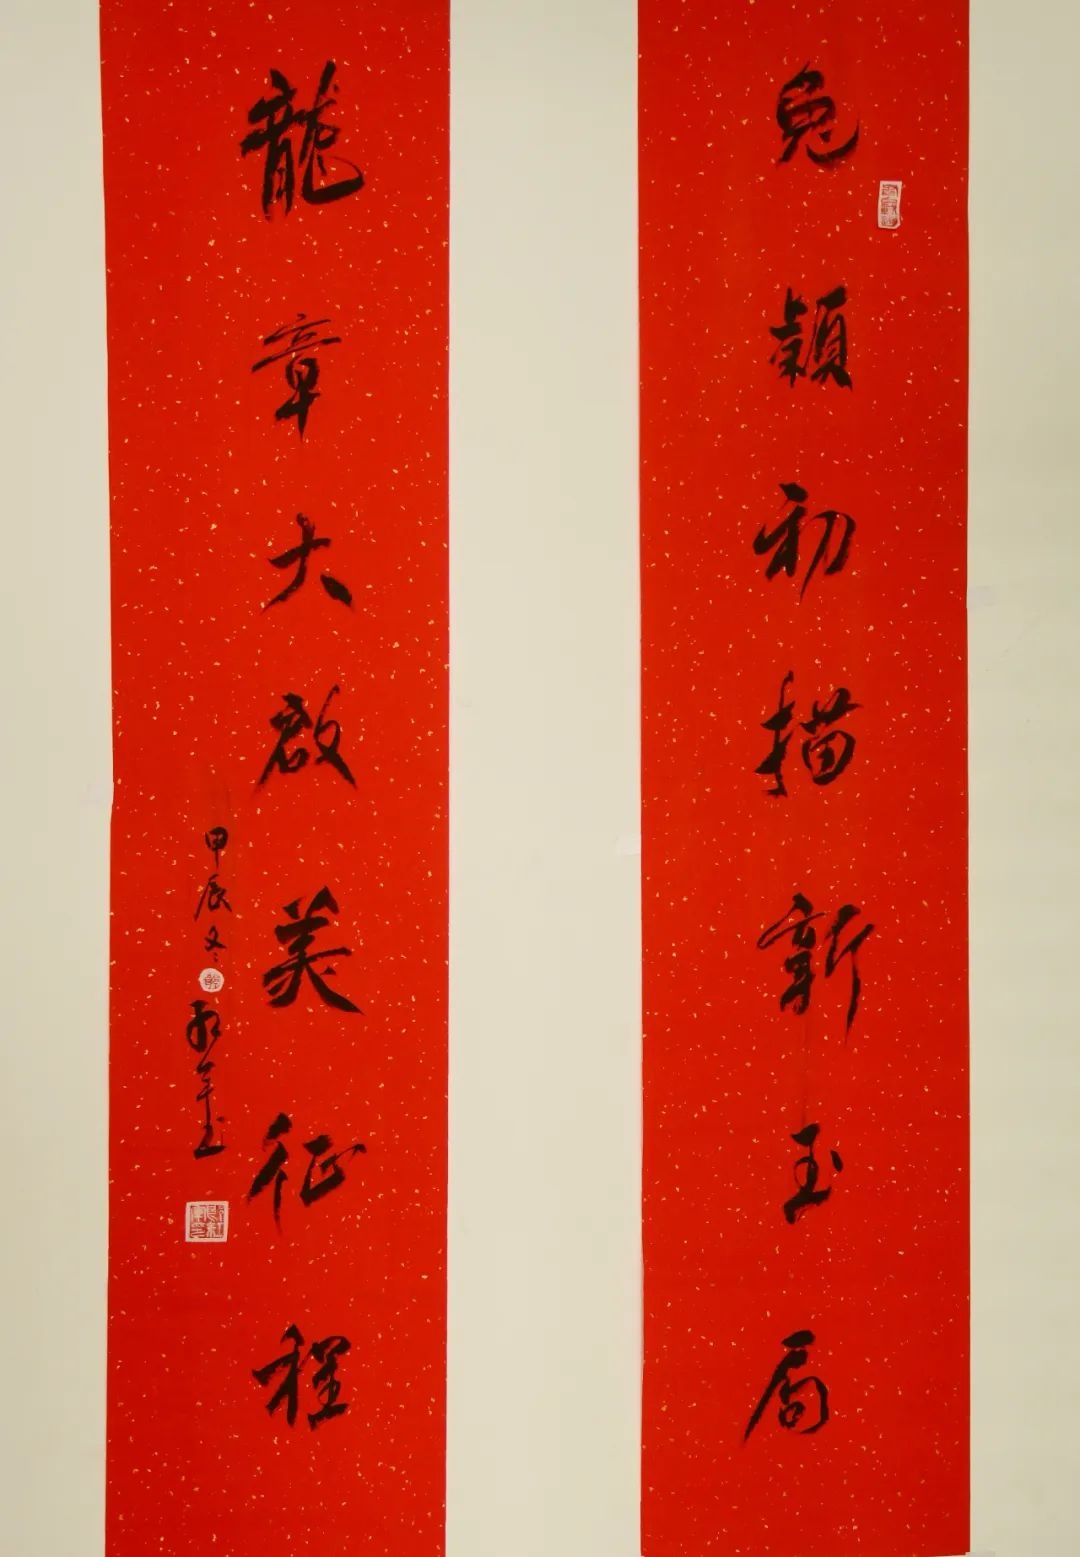 兔穎初描新玉局
龍章大啟美征程
甲辰冬